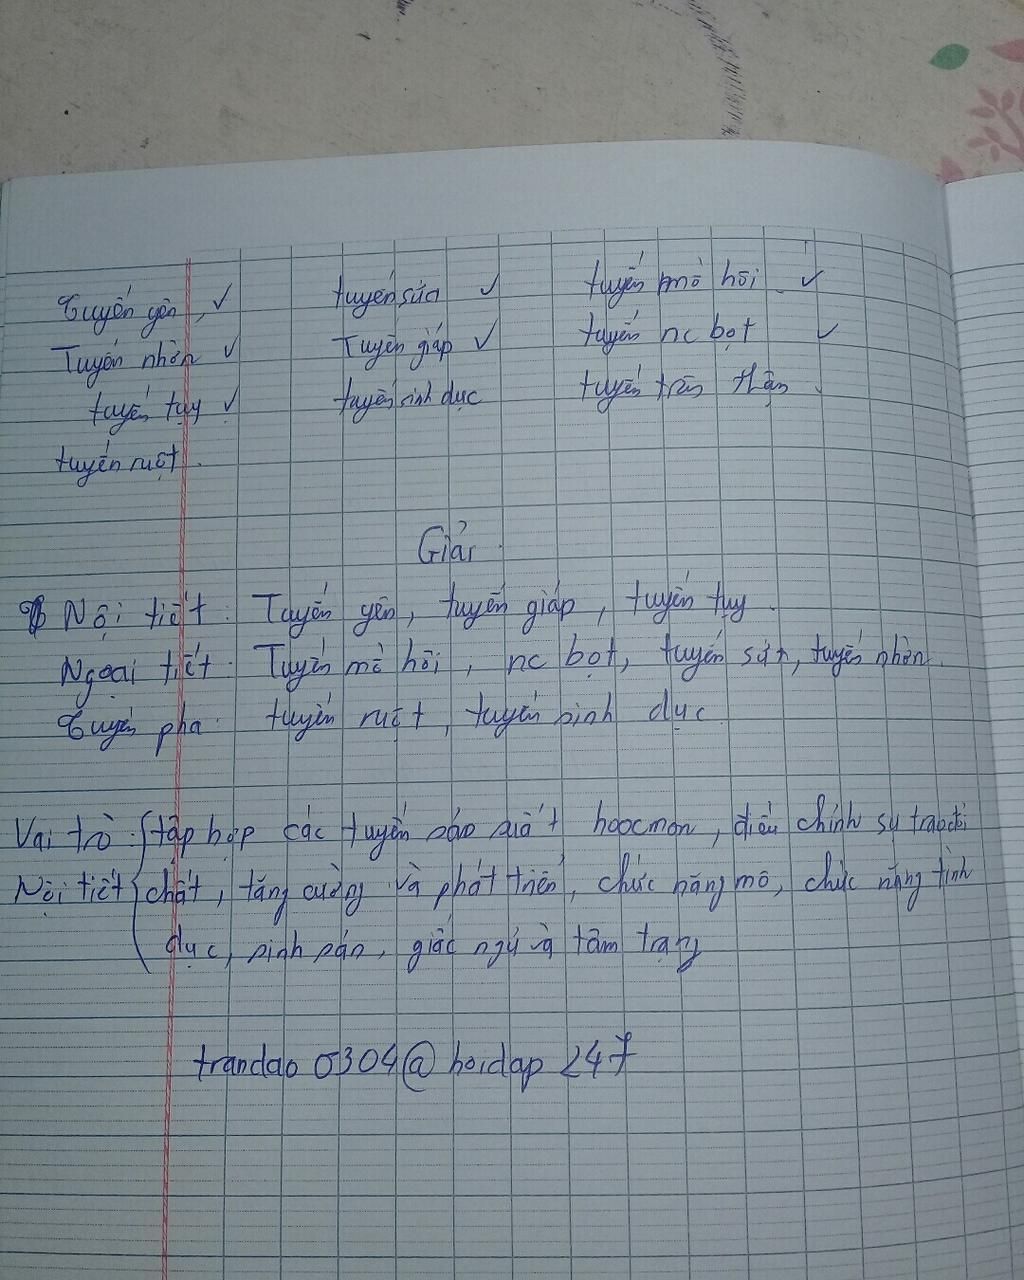 Tuyến yên, ✓ tuyến sữa ✓ tuyến mồ hôi ✓
Tuyến nhờn ✓ Tuyến giáp ✓ tuyến nc bọt ✓
tuyến tụy ✓ tuyến sinh dục tuyến trên thận
tuyến ruột.
Giải
Nội tiết: Tuyến yên, tuyến giáp, tuyến tụy.
Ngoại tiết: Tuyến mồ hôi, nc bọt, tuyến sữa, tuyến nhờn.
Tuyến pha: tuyến ruột, tuyến sinh dục
Vai trò: tập hợp các tuyến sản xuất hoocmon, điều chỉnh sự trao đổi
Nội tiết chất, tăng cường và phát triển, chức năng mô, chức năng tình
dục, sinh sản, giấc ngủ và tâm trạng
trandao 0304@ hoidap 247